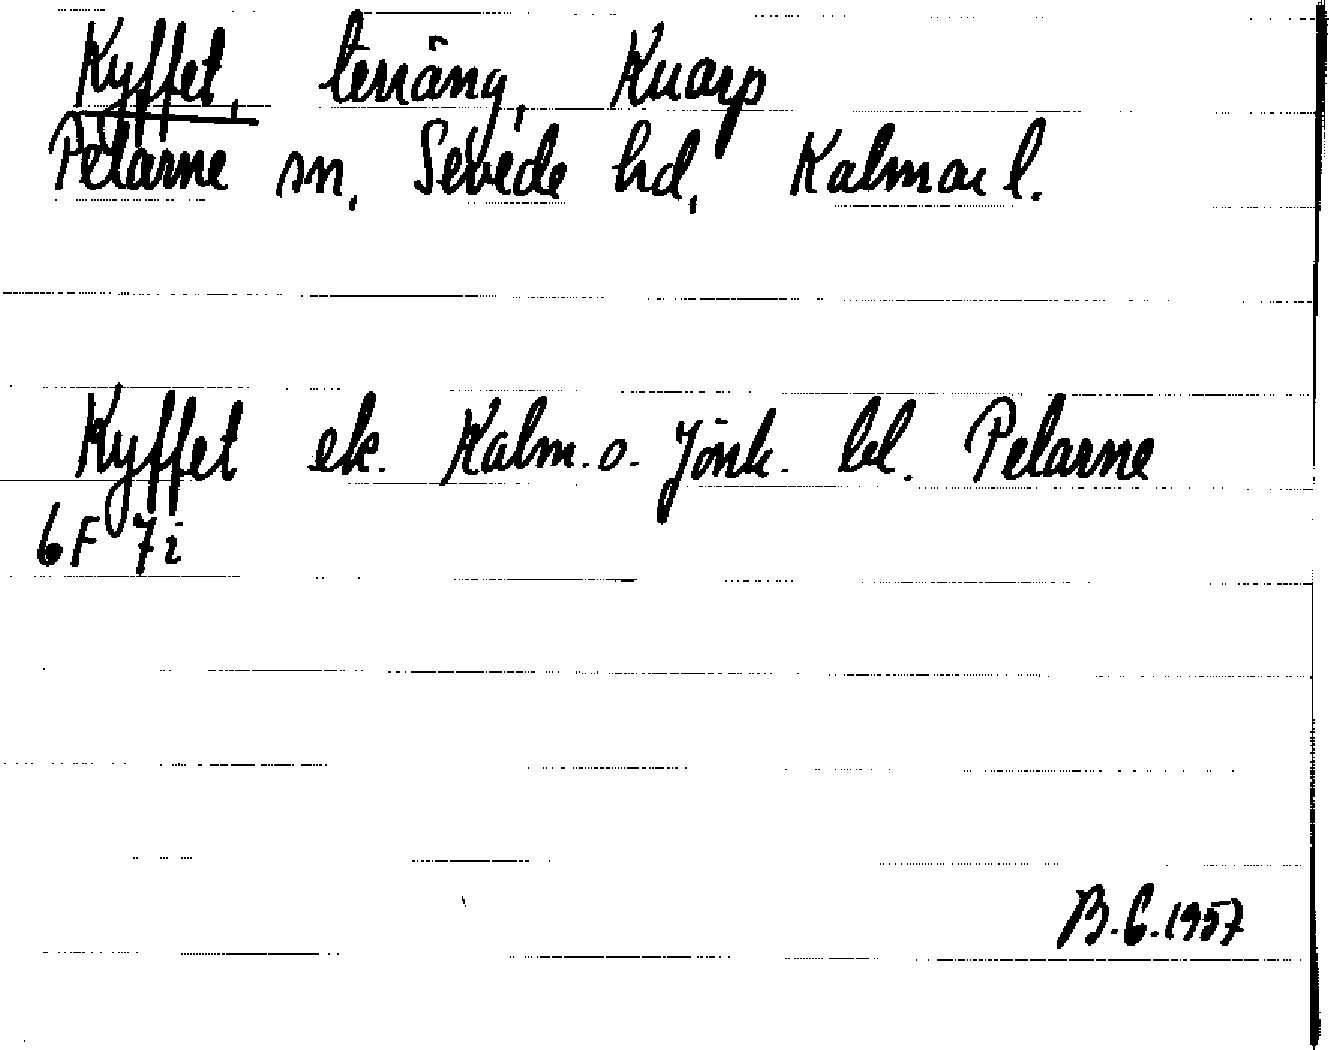 Kyffet, terräng, Kuarp
Pelarne sn, Sevede hd, Kalmar l.
Kyffet ek. Kalm. o. Jönk. bl. Pelarne
6F 7i
B.G. 1957